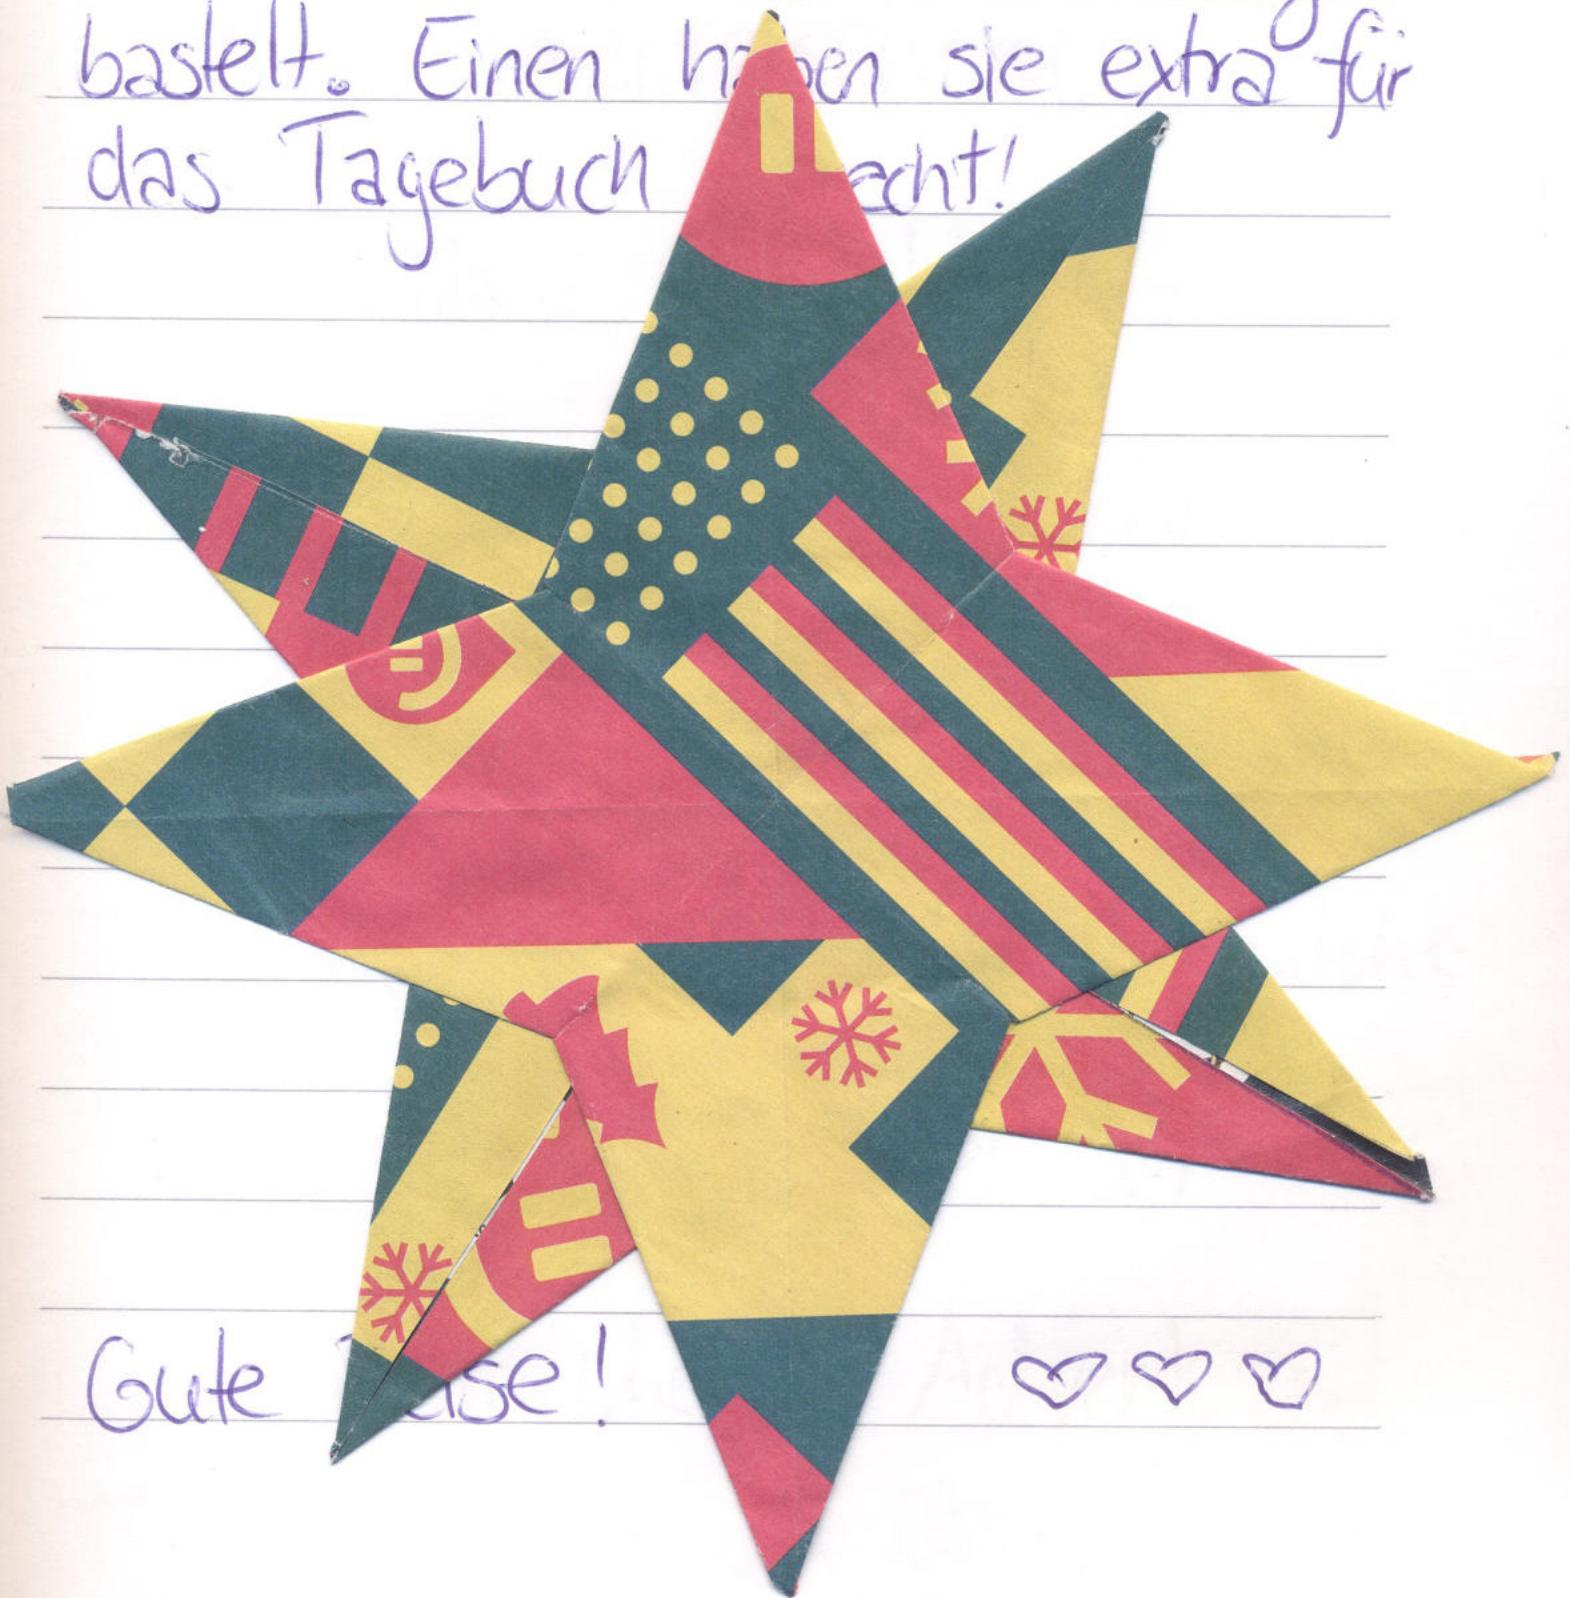 bastelt. Einen haben sie extra für
das Tagebuch acht!
Gute Reise!